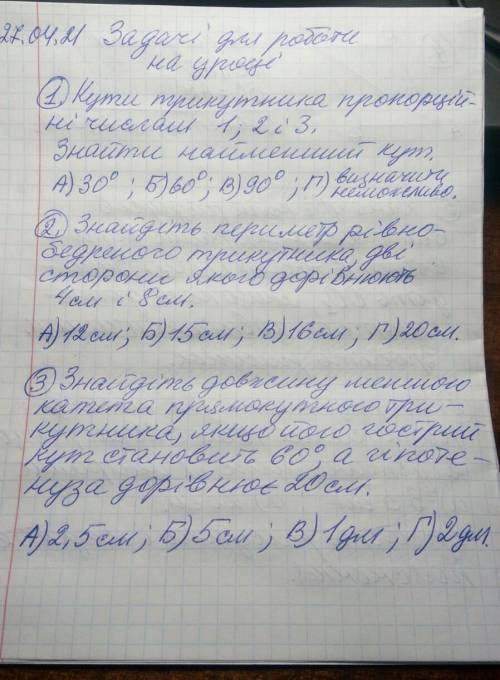 27.04.21 Задачі для роботи
на уроці
① Кути трикутника пропорцій-
ні числам 1; 2 і 3.
Знайти найменший кут.
А) 30°; Б) 60°; В) 90°; Г) визначити
неможливо.
② Знайдіть периметр рівно-
бедреного трикутника, дві
сторони якого дорівнюють
4см і 8см.
А) 12см; Б) 15см; В) 16см; Г) 20см.
③ Знайдіть довжину меншого
катета прямокутного три-
кутника, якщо його гострий
кут становить 60°, а гіпоте-
нуза дорівнює 20см.
А) 2,5см; Б) 5см; В) 1дм; Г) 2дм.